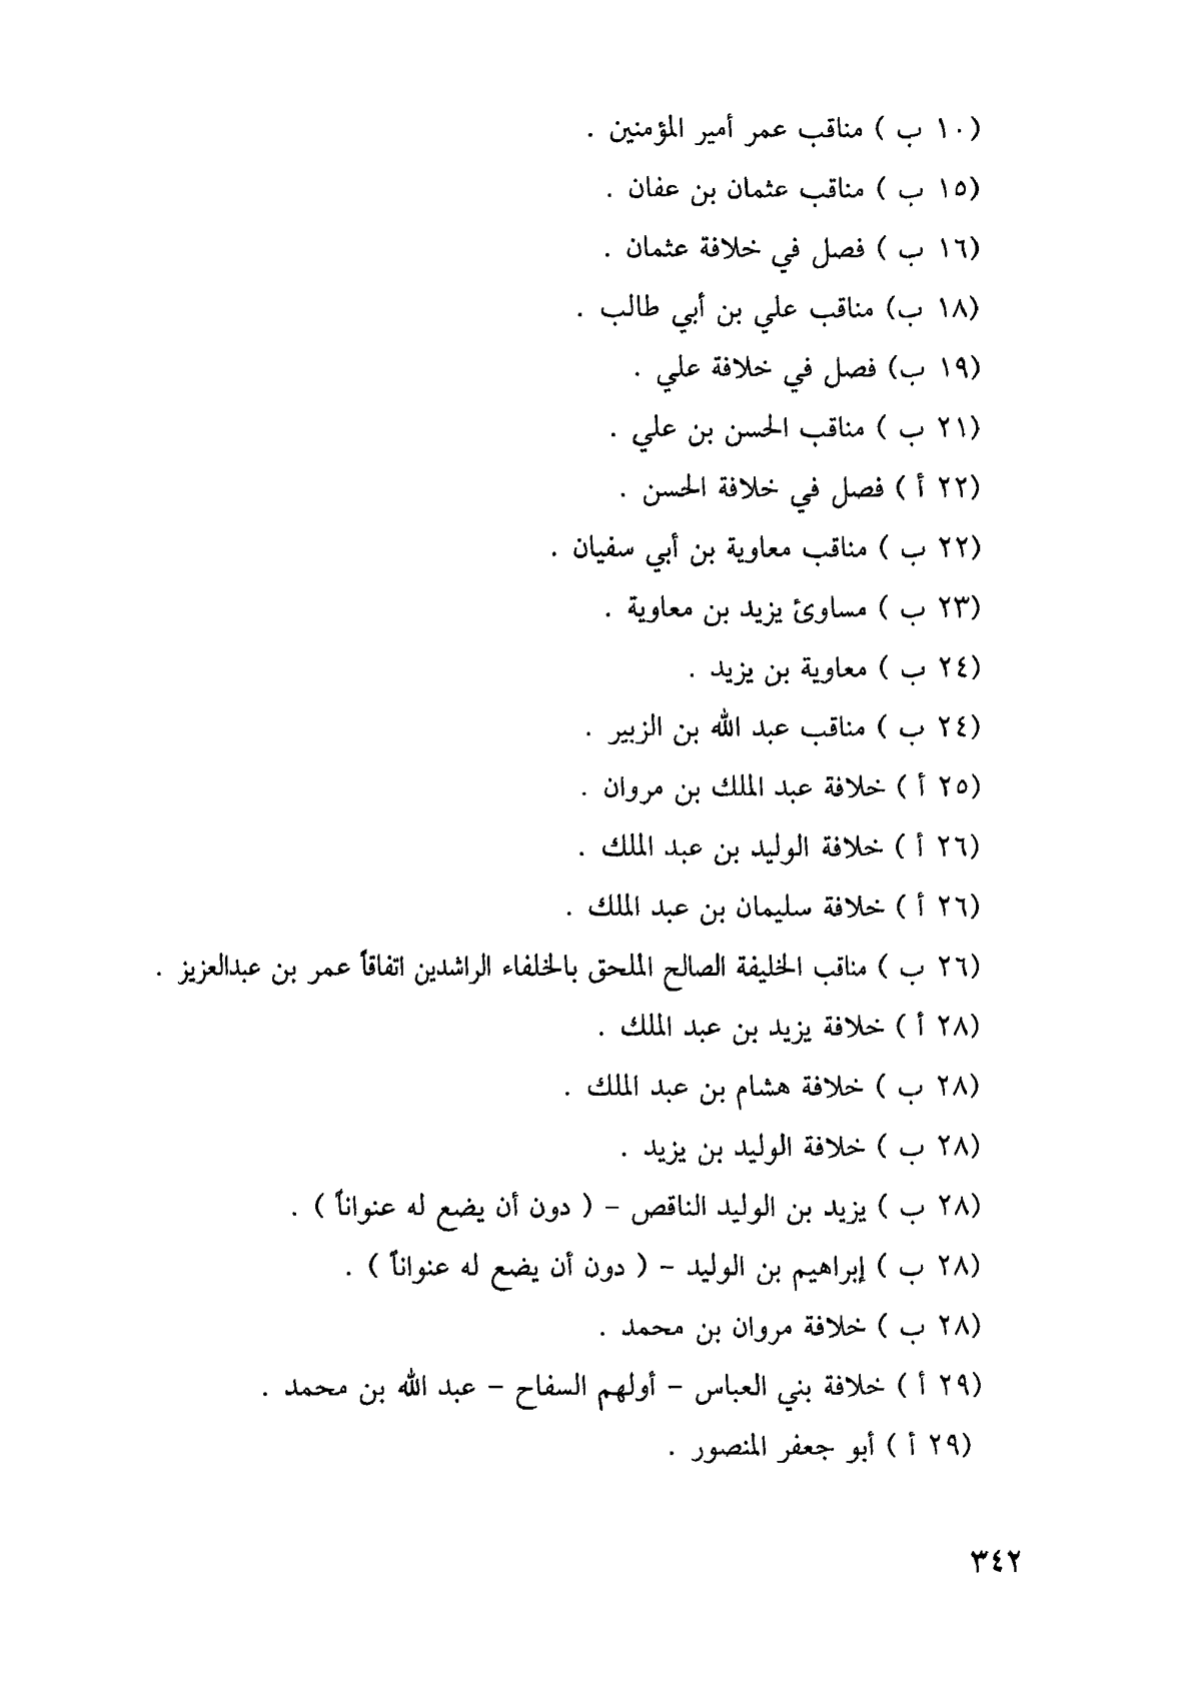 (١٠ ب ) مناقب عمر أمير المؤمنين .
(١٥ ب ) مناقب عثمان بن عفان .
(١٦ ب ) فصل في خلافة عثمان .
(١٨ ب) مناقب علي بن أبي طالب .
(١٩ ب) فصل في خلافة علي .
(٢١ ب ) مناقب الحسن بن علي .
(٢٢ أ ) فصل في خلافة الحسن .
(٢٢ ب ) مناقب معاوية بن أبي سفيان .
(٢٣ ب ) مساوئ يزيد بن معاوية .
(٢٤ ب ) معاوية بن يزيد .
(٢٤ ب ) مناقب عبد الله بن الزبير .
(٢٥ أ ) خلافة عبد الملك بن مروان .
(٢٦ أ ) خلافة الوليد بن عبد الملك .
(٢٦ أ ) خلافة سليمان بن عبد الملك .
(٢٦ ب ) مناقب الخليفة الصالح الملحق بالخلفاء الراشدين اتفاقاً عمر بن عبدالعزيز .
(٢٨ أ ) خلافة يزيد بن عبد الملك .
(٢٨ ب ) خلافة هشام بن عبد الملك .
(٢٨ ب ) خلافة الوليد بن يزيد .
(٢٨ ب ) يزيد بن الوليد الناقص – ( دون أن يضع له عنواناً ) .
(٢٨ ب ) إبراهيم بن الوليد – ( دون أن يضع له عنواناً ) .
(٢٨ ب ) خلافة مروان بن محمد .
(٢٩ أ ) خلافة بني العباس – أولهم السفاح – عبد الله بن محمد .
(٢٩ أ ) أبو جعفر المنصور .
٣٤٢